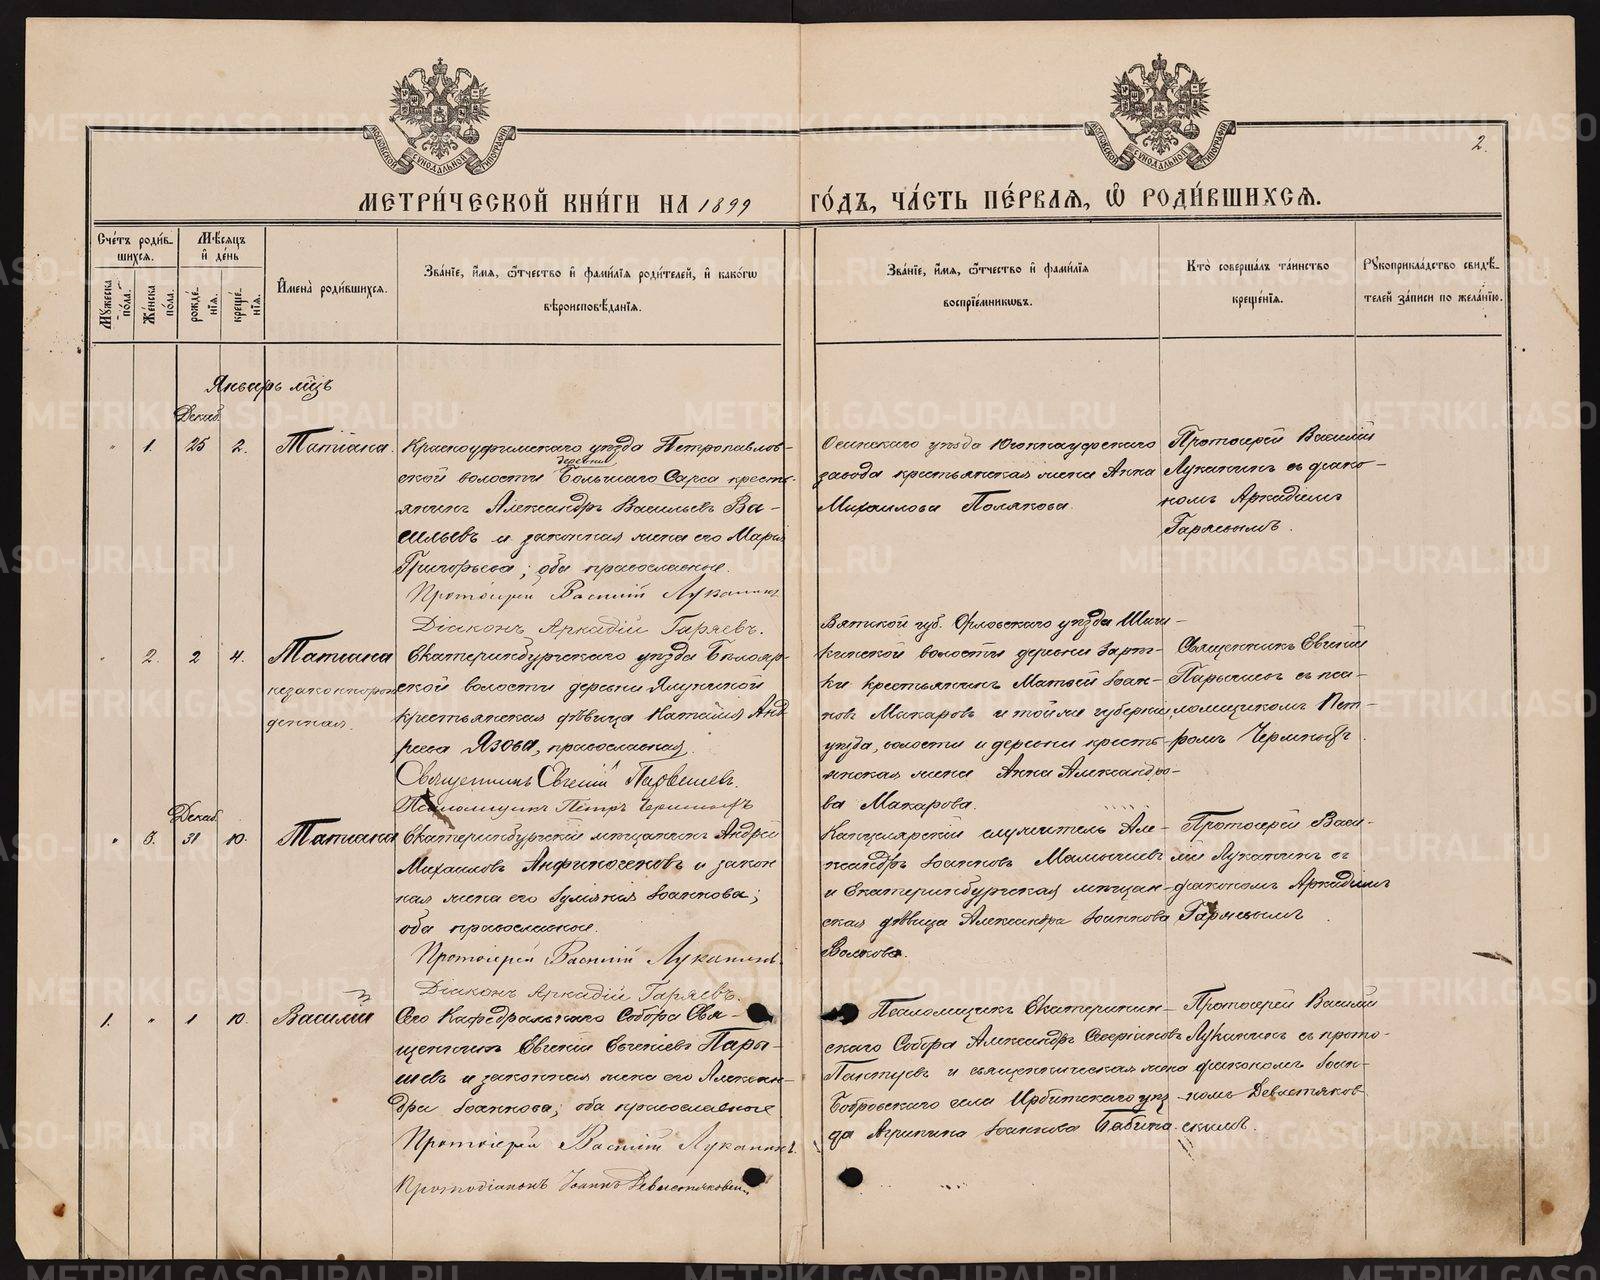 2.
МЕТРИ́ЧЕСКОЙ КНИ́ГИ НА 1899 ГО́ДЪ, ЧА́СТЬ ПЕ́РВАѦ, Ѽ РОДИ́ВШИХСѦ.
Сче́тъ роди́в-
шихся.
Мѣ́сяцъ
и҆ де́нь
Мꙋжеска по́ла.
Же́нска по́ла.
рожде́-нїѧ.
креще́-нїѧ.
И҆мена̀ роди́вшихся.
Зва́нїе, и҆́мя, ѻ҆́тчество и҆ фами́лїя роди́телей, и҆ како́гѡ
вѣроисповѣ́данїя.
Зва́нїе, и҆́мя, ѻ҆́тчество и҆ фами́лїя
воспрїе́мникѡвъ.
Кто̀ соверша́лъ та́инство
креще́нїя.
Рꙋкоприкла́дство свидѣ́-
телей за́писи по жела́нїю.
Январь мцъ
Декаб.
" 1. 25 2. Татіана
Красноуфимскаго уѣзда Петропавлов-
деревни
ской волости Большаго Сарса кресть-
янинъ Александръ Васильевъ Ва-
сильевъ и законная жена его Марья
Григорьева; оба православные.
Протоіерей Василій Луканинъ
Діаконъ Аркадій Гаряевъ.
Осинскаго уѣзда Югокнауфскаго
завода крестьянская жена Анна
Михаилова Полякова.
Протоіерей Василій
Луканинъ съ діако-
номъ Аркадіемъ
Гаряевымъ.
" 2. 2 4. Татіана
незаконнорож
денная.
Екатеринбургскаго уѣзда Белояр-
ской волости деревни Ялуниной
крестьянская дѣвица Наталія Анд
реева Язова, православная.
Священникъ Евгеній Парышевъ.
Псаломщикъ Петръ
Вятской губ. Орловскаго уѣзда
кинской волости деревни
ки крестьянинъ Матѳей Іоан-
новъ Макаровъ и той же губерніи,
уѣзда, волости и деревни кресть-
янская жена Анна Александро-
ва Макарова.
Священникъ Евгеній
Парышевъ съ пса-
ломщикомъ Пет-
ромъ
Декаб.
" 3. 31 10. Татіана
Екатеринбургскій мѣщанинъ Андрей
Михаиловъ Анфиногеновъ и закон
ная жена его Іуліанія Іоаннова;
оба православные.
Протоіерей Василій Луканинъ.
Діаконъ Аркадій Гаряевъ.
Канцелярскій служитель Але-
ксандръ Іоанновъ Мамычевъ
и Екатеринбургская мѣщан-
ская дѣвица Александра Іоаннова
Волкова.
Протоіерей Васи-
лій Луканинъ съ
діакономъ Аркадіемъ
Гаряевымъ.
1. " 1 10. Василій
Сего Кафедральнаго Собора Свя-
щенникъ Евгеній Евгеніевъ Пары-
шевъ и законная жена его Алексан-
дра Іоаннова; оба православные
Протоіерей Василій Луканинъ.
Протодіаконъ Іоаннъ
Псаломщикъ Екатеринин-
скаго Собора Александръ Северіановъ
Пантуевъ и священническая жена
Бобровскаго села Ирбитскаго уѣз-
да Агрипина Іоаннова Бабина.
Протоіерей Василій
Луканинъ съ прото-
діакономъ Іоан-
номъ Девлетяков-
скимъ.